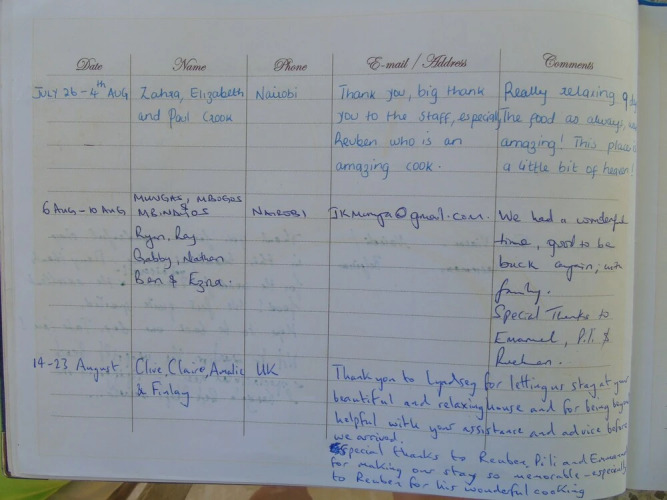 Date Name Phone E-mail / Address Comments
JULY 26 - 4th AUG
Zahra, Elizabeth
and Paul Cook
Nairobi
Thank you, big thank
you to the staff, especially
Reuben who is an
amazing cook.
Really relaxing 9
The food as always,
amazing! This place
a little bit of heaven!
6 AUG - 10 AUG
MUNGAS, MBUGOS
&
NAIROBI
JKMunga@gmail.com.
Ryan, Ray
Gabby, Nathan
Ben & Ezra.
We had a wonderful
time, good to be
back again, with
family.
Special Thanks to
Emanuel, P.I.I. &
14-23 August
Clive, Claire, Amelie
& Finlay
UK
Thank you to Lyndsey for letting us stay at your
beautiful and relaxing house and for being
helpful with your assistance and advice before
we arrived.
Special thanks to Reuben, Pili and Emmanuel
for making our stay so memorable - especially
to Reuben for his wonderful cooking